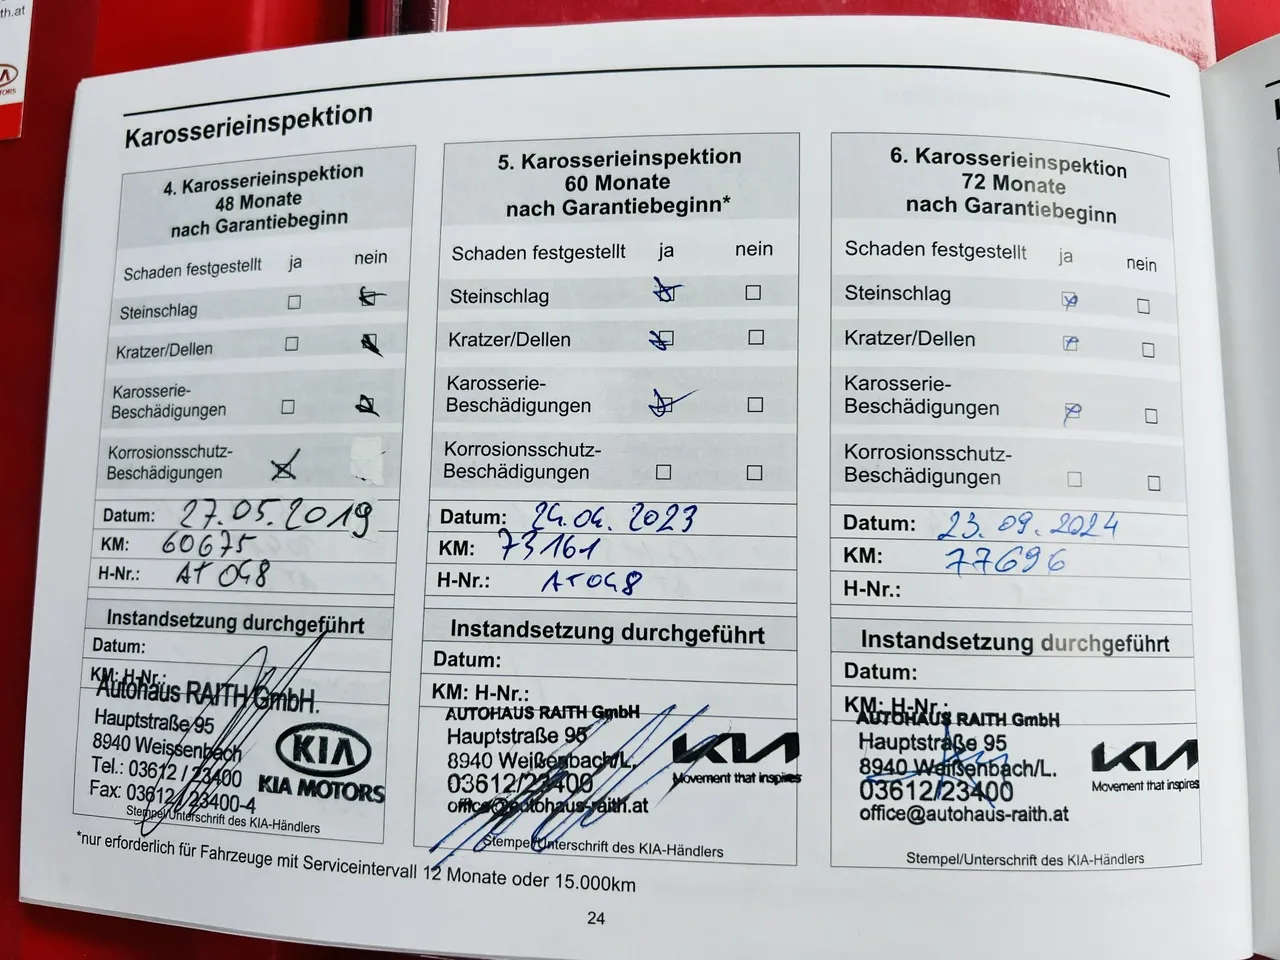 th.at
Karosserieinspektion
4. Karosserieinspektion
48 Monate
nach Garantiebeginn
Schaden festgestellt ja nein
Steinschlag
Kratzer/Dellen
Karosserie-
Beschädigungen
Korrosionsschutz-
Beschädigungen
Datum: 27.05.2019
KM: 60675
H-Nr.: AT048
Instandsetzung durchgeführt
Datum:
KM: H-Nr.:
Autohaus RAITH GmbH.
Hauptstraße 95
8940 Weissenbach
Tel.: 03612 / 23400
Fax: 03612 / 23400-4
KIA
KIA MOTORS
Stempel/Unterschrift des KIA-Händlers
5. Karosserieinspektion
60 Monate
nach Garantiebeginn*
Schaden festgestellt ja nein
Steinschlag
Kratzer/Dellen
Karosserie-
Beschädigungen
Korrosionsschutz-
Beschädigungen
Datum: 24.04.2023
KM: 73161
H-Nr.: AT048
Instandsetzung durchgeführt
Datum:
KM: H-Nr.:
AUTOHAUS RAITH GmbH
Hauptstraße 95
8940 Weißenbach/L.
03612/23400
office@autohaus-raith.at
KIA
Movement that inspires
Stempel/Unterschrift des KIA-Händlers
6. Karosserieinspektion
72 Monate
nach Garantiebeginn
Schaden festgestellt ja nein
Steinschlag
Kratzer/Dellen
Karosserie-
Beschädigungen
Korrosionsschutz-
Beschädigungen
Datum: 23.09.2024
KM: 77696
H-Nr.:
Instandsetzung durchgeführt
Datum:
KM: H-Nr.:
AUTOHAUS RAITH GmbH
Hauptstraße 95
8940 Weißenbach/L.
03612/23400
office@autohaus-raith.at
KIA
Movement that inspires
Stempel/Unterschrift des KIA-Händlers
*nur erforderlich für Fahrzeuge mit Serviceintervall 12 Monate oder 15.000km
24